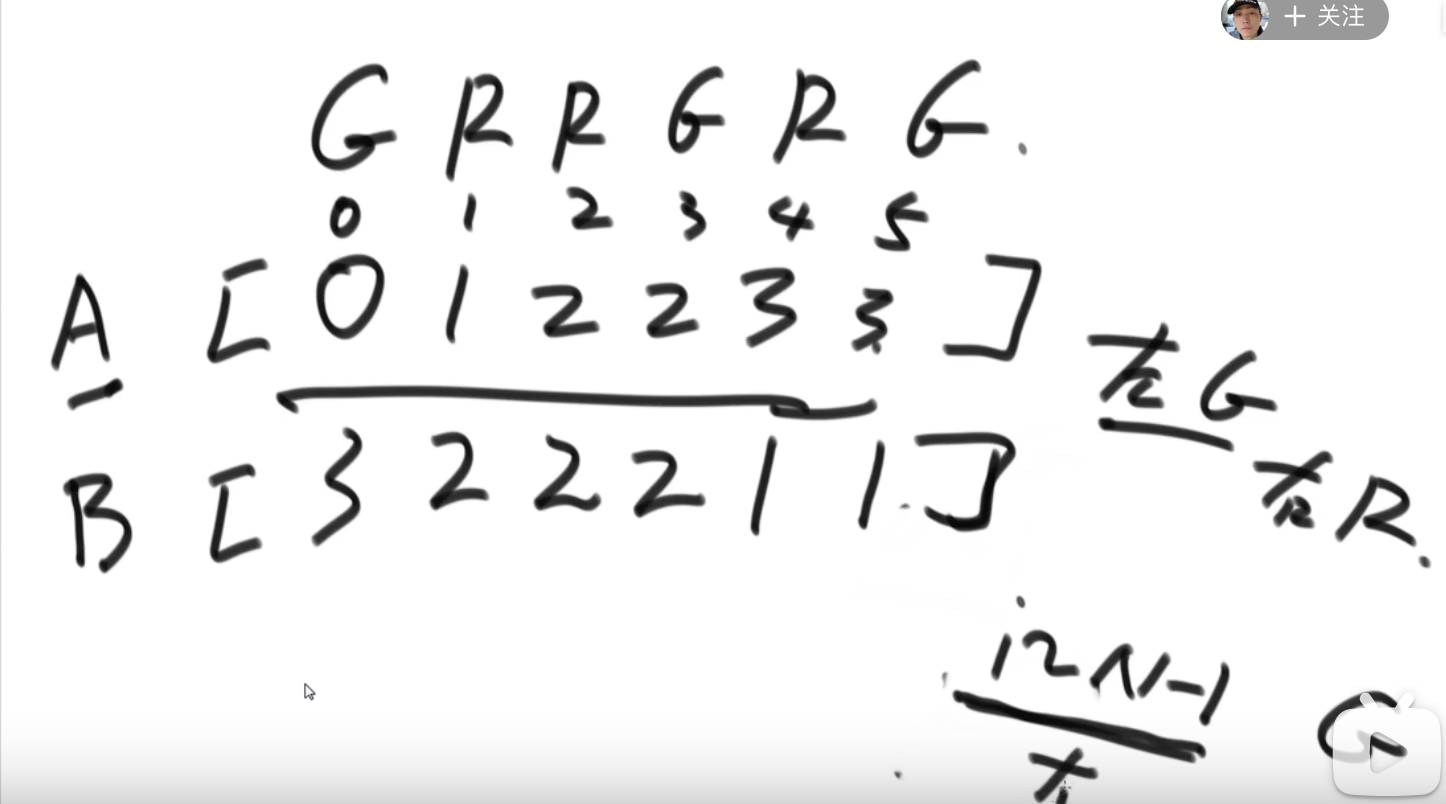 + 关注
G R R G R G.
0 1 2 3 4 5
A [0 1 2 2 3 3]
左G
B [3 2 2 2 1 1.]
左R.
12N-1
G